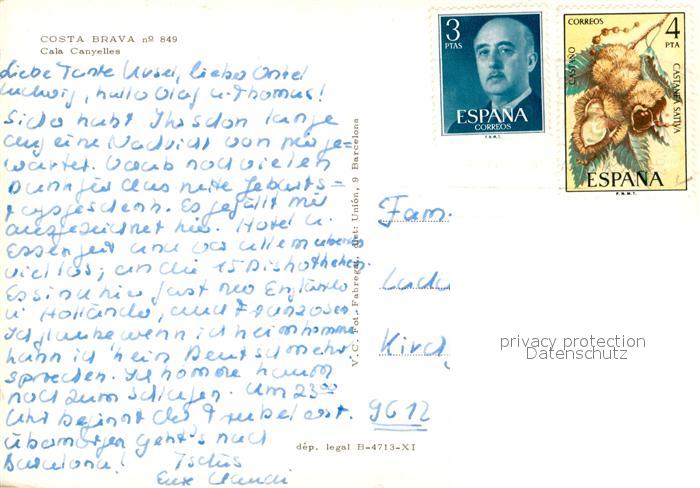 COSTA BRAVA nº 849
Cala Canyelles
Liebe Tante Ursel, lieber Onkel
Ludwig, hallo Olaf u. Thomas!
Sicher habt Ihr schon lange
auf eine Nachricht von mir ge-
wartet. Vorab noch vielen
Dank für das nette Geburts-
tagsgeschenk. Es gefällt mir
ausgezeichnet hier. Hotel u.
Essen gut und vor allem überall
viel los; an die 15 Diskotheken.
Es sind hier fast nur Engländer
u. Holländer, und Franzosen
Ich glaube wenn ich heimkomme
kann ich kein Deutsch mehr
sprechen. Ich komme kaum
noch zum schlafen. Um 23⁰⁰
Uhr beginnt der Trubel erst.
Übermorgen geht's nach
Barcelona! Tschüs
Eure Claudi
V. C. Fot. Fabregat, dist: Unión, 9 Barcelona
dép. legal B-4713-XI
3
PTAS
ESPAÑA
CORREOS
F.N.M.T.
CORREOS
4
PTA
CASTAÑO
CASTANEA SATIVA
ESPAÑA
F.N.M.T.
Fam.
Kirch
9612
privacy protection
Datenschutz